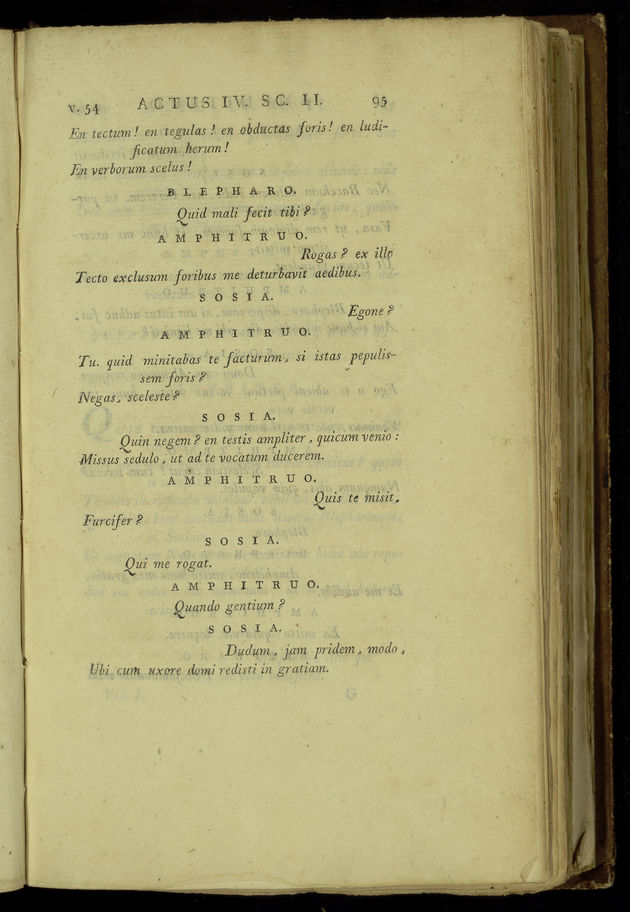 v. 54 ACTUS IV. SC. II. 95
En tectum! en tegulas! en obductas foris! en ludi-
ficatum herum!
En verborum scelus!
BLEPHARO.
Quid mali fecit tibi?
AMPHITRUO.
Rogas? ex illo
Tecto exclusum foribus me deturbavit aedibus.
SOSIA.
Egone?
AMPHITRUO.
Tu. quid minitabas te facturum, si istas pepulis-
sem foris?
Negas, sceleste?
SOSIA.
Quin negem? en testis ampliter, quicum venio:
Missus sedulo, ut ad te vocatum ducerem.
AMPHITRUO.
Quis te misit,
Furcifer?
SOSIA.
Qui me rogat.
AMPHITRUO.
Quando gentium?
SOSIA.
Dudum, jam pridem, modo,
Ubi cum uxore domi redisti in gratiam.
Vol. I. G